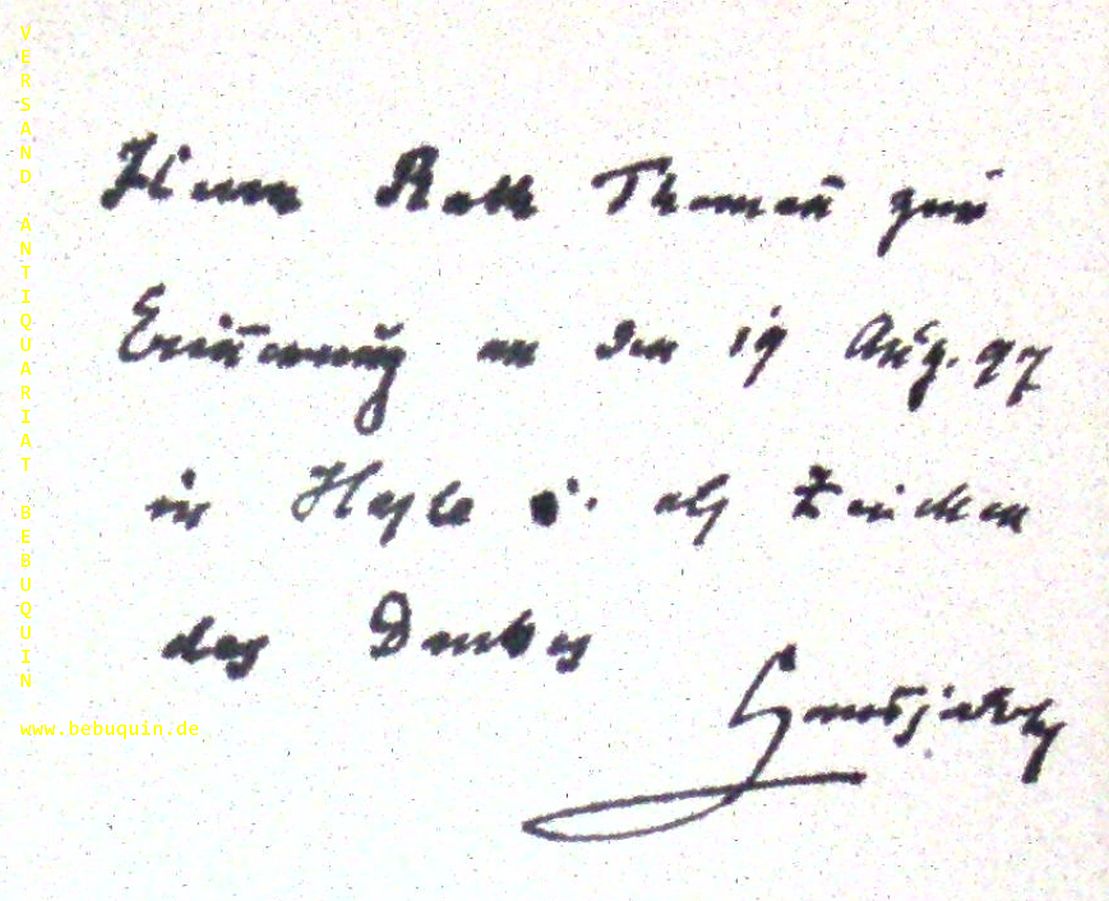 Herrn Rath Thomañ zur
Eriñerung an den 19 Aug. 97
in Hasle u. als Zeichen
des Dankes
Hansjakob
VERSAND ANTIQUARIAT BEBUQUIN
www.bebuquin.de